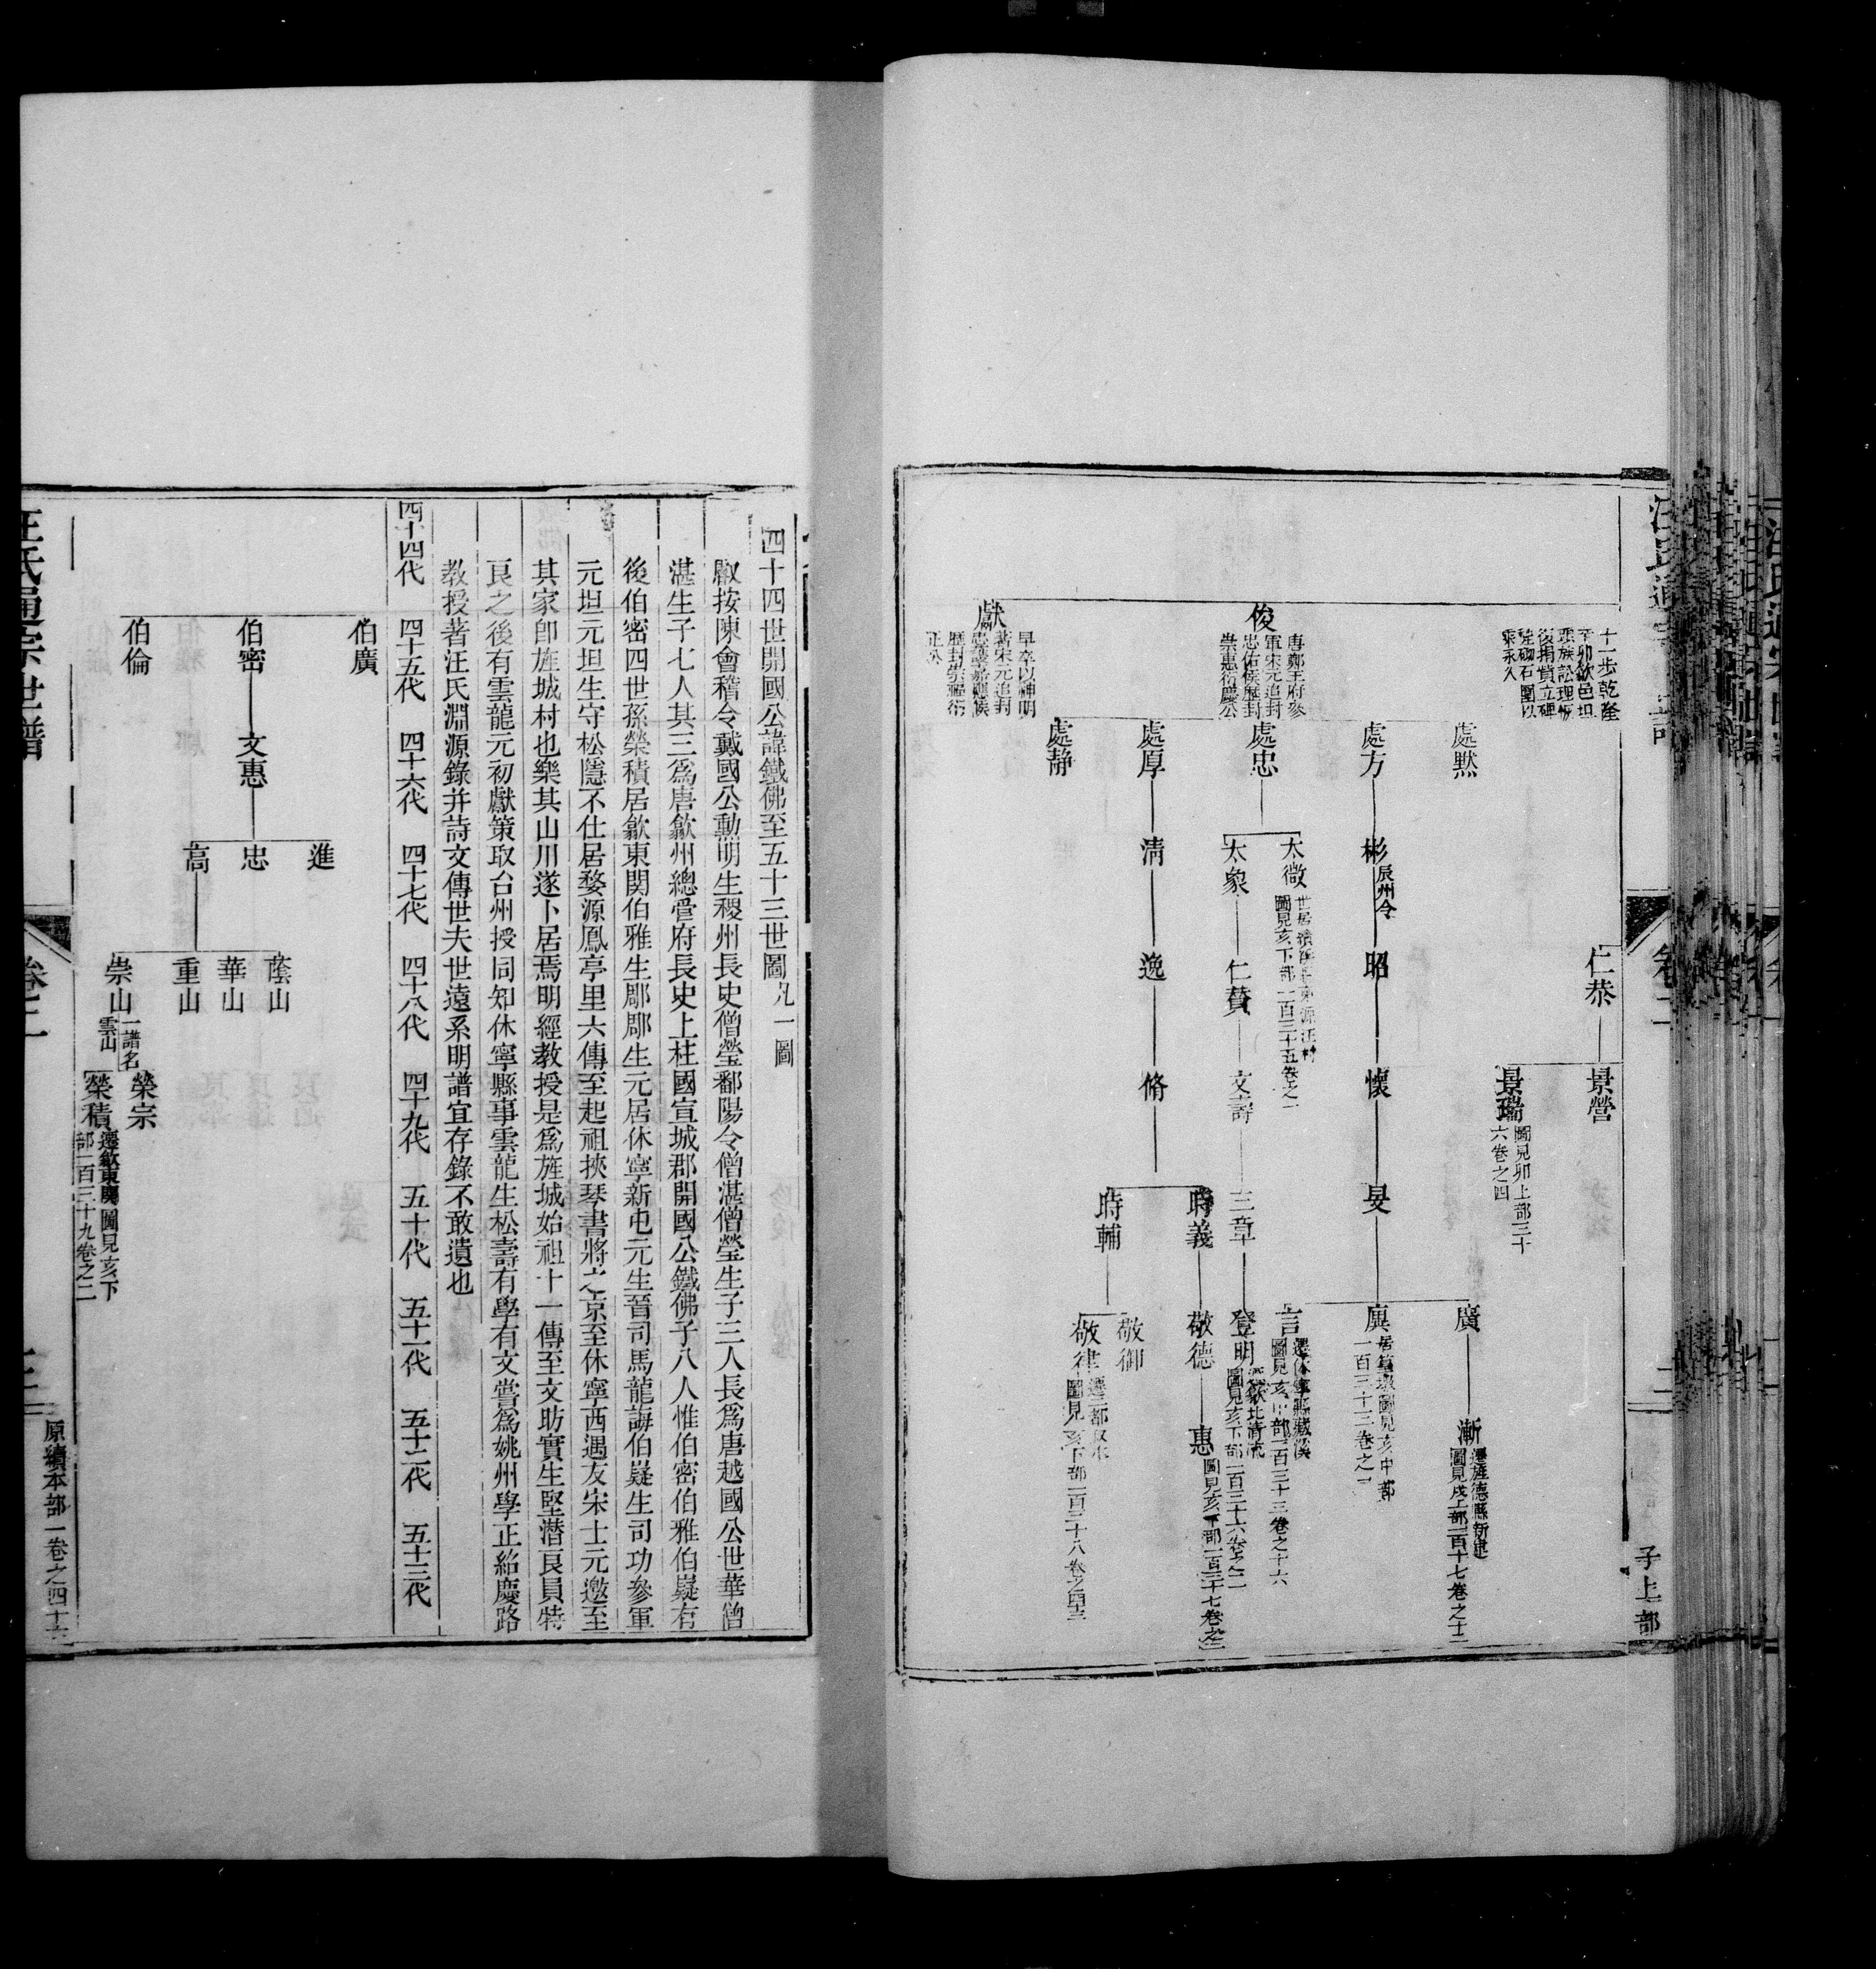 十一步乾隆
辛卯歙邑坦
後捐貲立碑
仁恭
景營
景瑞
圖見卯上部三十
六卷之四
俊
唐鄭王府參
軍宋元追封
忠佑侯歷封
崇惠衍慶公
獻
早卒以神明
著宋元追封
歷封崇福衍
處默
處方
彬
辰州令
昭
懷
晏
廣
漸
遷旌德縣新建
圖見戌上部一百十七卷之十二
廙
圖見亥中部
一百三十三卷之一
言
遷休寧縣藏溪
圖見亥中部一百三十三卷之十六
處忠
太微
圖見亥下部一百三十五卷之一
太象
仁贊
文壽
三章
登明
遷歙北清流
圖見亥下部一百三十六卷之二
處厚
清
逸
脩
時義
敬德
惠
圖見亥下部一百三十七卷之三
時輔
敬御
敬律
圖見亥下部一百三十八卷之四
處静
子上部
四十四世開國公諱鐵佛至五十三世圖凡一圖
敞按陳會稽令戴國公勲明生稷州長史僧瑩鄱陽令僧湛僧瑩生子三人長爲唐越國公世華僧
湛生子七人其三爲唐歙州總管府長史上柱國宣城郡開國公鐵佛子八人惟伯密伯雅伯嶷有
後伯密四世孫榮積居歙東関伯雅生郿郿生元居休寧新屯元生晉司馬龍誨伯嶷生司功參軍
元坦元坦生守松隱不仕居婺源鳳亭里六傳至起祖挾琴書將之京至休寧西遇友宋士元邀至
其家卽旌城村也樂其山川遂卜居焉明經教授是爲旌城始祖十一傳至文昉實生堅潛良員特
良之後有雲龍元初獻策取台州授同知休寧縣事雲龍生松壽有學有文嘗爲姚州學正紹慶路
教授著汪氏淵源錄并詩文傳世夫世遠系明譜宜存錄不敢遺也
四十四代　四十五代　四十六代　四十七代　四十八代　四十九代　五十代　五十一代　五十二代　五十三代
伯廣
伯密
文惠
進
忠
高
蔭山
華山
重山
崇山
一譜名
雲山
榮宗
榮積
遷歙東関圖見亥下
部一百三十九卷之二
伯倫
汪氏通宗世譜
卷二
原續本部一卷之四十六